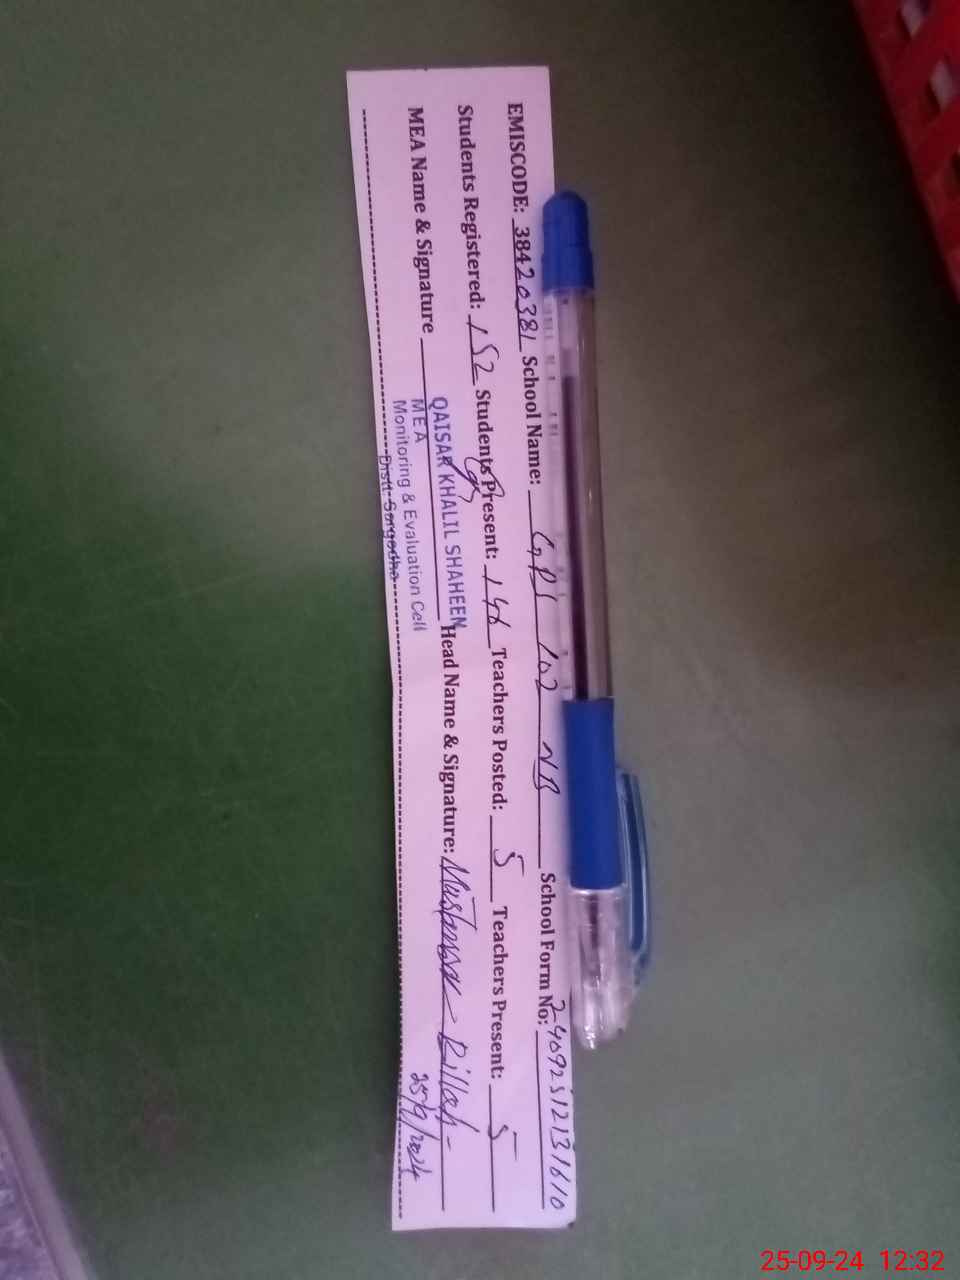 EMISCODE: 38420381 School Name: GPS 102 NB School Form No: 2-4092512131610
Students Registered: 152 Students Present: 146 Teachers Posted: 5 Teachers Present: 5
MEA Name & Signature Head Name & Signature:
QAISAR KHALIL SHAHEEN
MEA
Monitoring & Evaluation Cell
Distt. Sargodha
25/9/2024
25-09-24 12:32